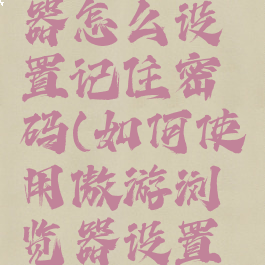 器怎么设
置记住密
码(如何使
用傲游浏
览器设置